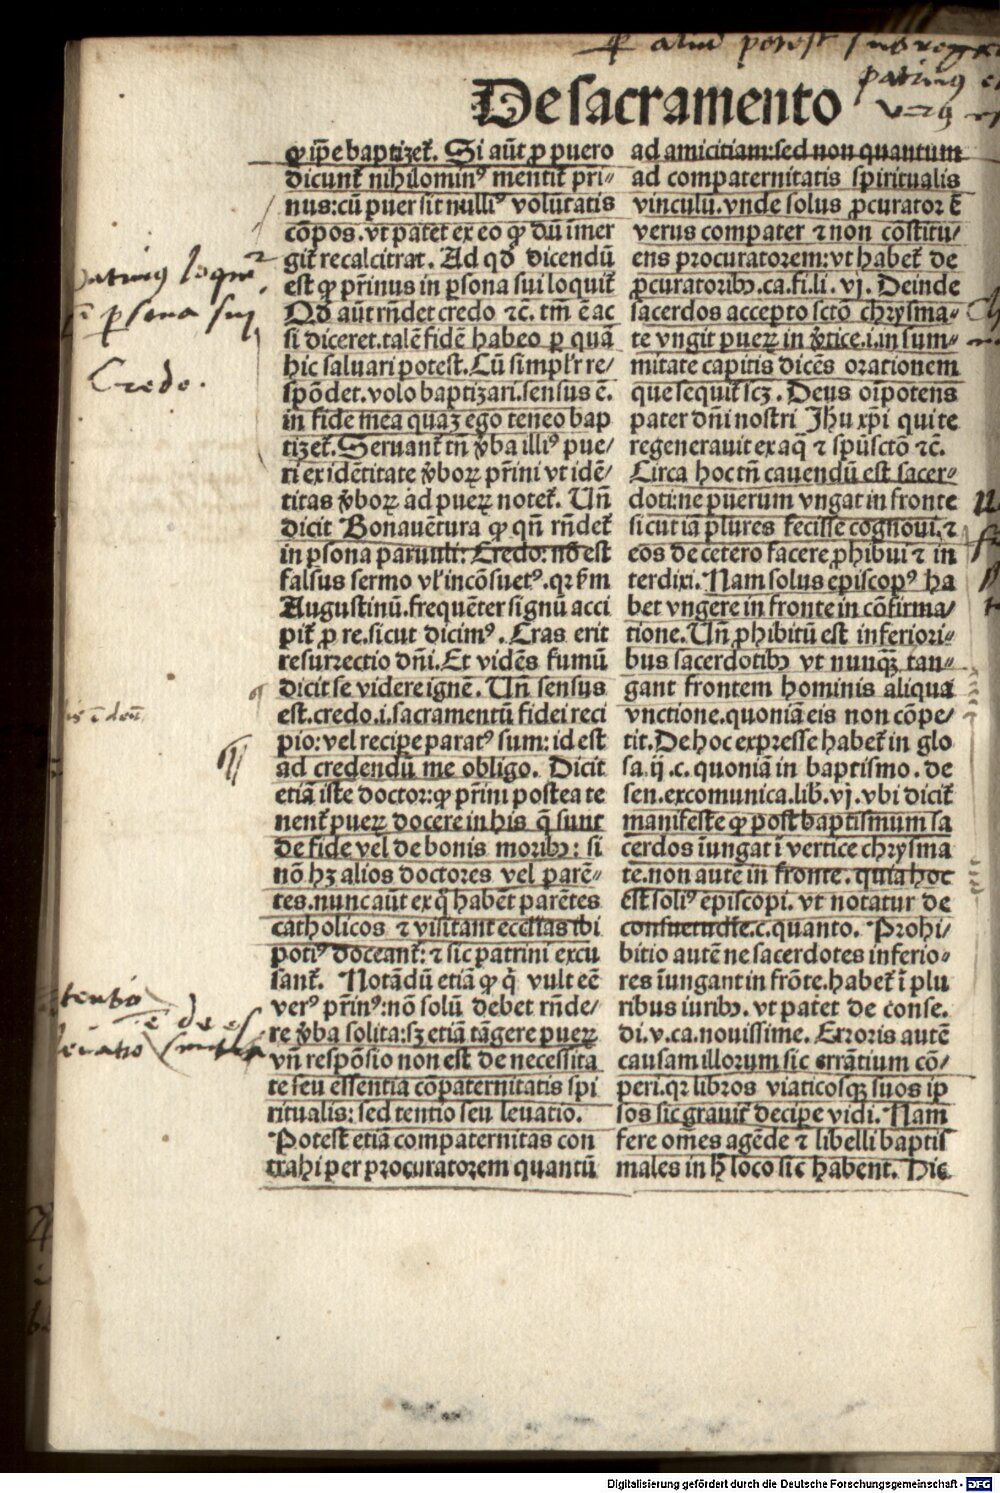 De sacramento
ꝙ ip̄e baptizet᷑. Si aūt ꝓ puero
dicunt᷑ nihilominꝰ mentit᷑ pri⸗
nus:cū puer sit nulliꝰ volūtatis
cōpos. vt patet ex eo ꝙ dū imer
git᷑ recalcitrat. Ad qď dicendū
est ꝙ pr̄inus in ꝑsona sui loquit᷑
Qď aūt rn̄det credo ⁊c̄. tm̄ ē ac
si diceret. talē fidē habeo ꝑ quā
hic saluari potest. Cū simpl'r re⸗
spōdet. volo baptizari. sensus ē.
in fide mea quaꝫ ego teneo bap
tizet᷑. Seruant᷑ tn̄ v̄ba illiꝰ pue⸗
ri ex idētitate v̄boꝝ pr̄ini vt idē⸗
titas v̄boꝝ ad pueꝝ notet᷑. Un̄
dicit Bonauētura ꝙ qn̄ rn̄det᷑
in ꝑsona paruuli: Credo: nō est
falsus sermo vl' incōsuetꝰ. qꝛ ẜm
Augustinū. frequēter signū acci
pit᷑ ꝓ re. sicut dicimꝰ. Cras erit
resurrectio dn̄i. Et vidēs fumū
dicit se videre ignē. Un̄ sensus
est. credo .i. sacramentū fidei reci
pio: vel recipe paratꝰ sum: id est
ad credendū me obligo. Dicit
etiā iste doctor: ꝙ pr̄ini postea te
nent᷑ pueꝝ docere in his q̄ sunt
de fide vel de bonis moribꝫ: si
nō hꝫ alios doctores vel parē⸗
tes. nunc aūt ex q̊ habēt parētes
catholicos ⁊ visitant eccl'ias ibi
potiꝰ doceant᷑: ⁊ sic patrini excu
sant᷑. Notādū etiā ꝙ q̇ vult eē
verꝰ pr̄inꝰ: nō solū debet rn̄de⸗
re v̄ba solita: sꝫ etiā tāgere pueꝝ
vn̄ respōsio non est de necessita
te seu essentia cōpaternitatis spi
ritualis: sed tentio seu leuatio.
Potest etiā compaternitas con
trahi per procuratorem quantū
ad amicitiam: sed non quantum
ad compaternitatis spiritualis
vinculū. vnde solus ꝓcurator ē
verus compater ⁊ non cōstitu⸗
ens procuratorem: vt habet᷑ de
ꝓcuratoribꝫ. ca. fi. li. vj. Deinde
sacerdos accepto sctō chrysma⸗
te vngit pueꝝ in v̄tice .i. in sum⸗
mitate capitis dicēs orationem
que sequit᷑ scꝫ. Deus oīpotens
pater dn̄i nostri Jhu xp̄i qui te
regenerauit ex aq̄ ⁊ spūsctō ⁊c̄.
Circa hoc tn̄ cauendū est sacer⸗
doti: ne puerum vngat in fronte
sicut iā plures fecisse cognoui. ⁊
eos de cetero facere ꝓhibui ⁊ in
terdixi. Nam solus episcopꝰ ha
bet vngere in fronte in cōfirma⸗
tione. Un̄ ꝓhibitū est inferiori⸗
bus sacerdotibꝫ vt nunqꝫ tan⸗
gant frontem hominis aliqua
vnctione. quoniā eis non cōpe⸗
tit. De hoc expresse habet᷑ in glo
sa. ij. c. quoniā in baptismo. de
sen. excomunica. lib. vj. vbi dicit᷑
manifeste ꝙ post baptismum sa
cerdos īungat ī vertice chrysma
te. non autē in fronte. quia hoc
est soliꝰ episcopi. vt notatur de
consuetudīe. c. quanto. Prohi⸗
bitio autē ne sacerdotes inferio⸗
res īungant in frōte. habet᷑ ī plu
ribus iuribꝫ. vt patet de conse.
di. v. ca. nouissime. Erroris autē
causam illorum sic errātium cō⸗
peri. qꝛ libros viaticosqꝫ suos ip
sos sic grauit᷑ decipe vidi. Nam
fere omēs agēde ⁊ libelli baptis
males in h̄ loco sic habent. Hic
Credo.
Digitalisierung gefördert durch die Deutsche Forschungsgemeinschaft - DFG